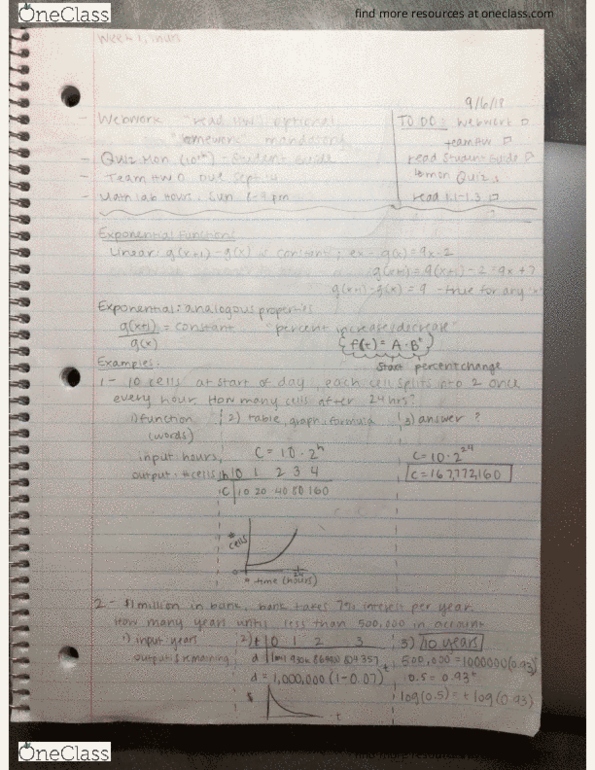 OneClass
find more resources at oneclass.com
Week 1, Thurs
9/6/18
- Webwork "read HW" optional
"homework" mandatory
- Quiz Mon. (10th) - Student Guide
- Team HW 0 due Sept 14
- Math lab hours, Sun
TO DO: Webwork
team HW
read Student Guide
Quiz
read 1.1-1.3
Exponential Functions
Linear: g(x+1) - g(x) = constant; ex - g(x) = 9x-2
g(x+1) = 9(x+1) - 2 = 9x + 7
g(x+1) - g(x) = 9 - true for any "x"
Exponential: analogous properties
g(x+1)/g(x) = constant "percent increase/decrease"
f(t) = A · Bᵗ
start percent change
Examples:
1- 10 cells at start of day, each cell splits into 2 once
every hour. How many cells after 24 hrs?
1) function (words)
input: hours,
output: # cells
2) table, graph, formula
C = 10 · 2ʰ
h | 0 1 2 3 4
C | 10 20 40 80 160
# cells
0
time (hours)
24
3) answer?
C = 10 · 2²⁴
C = 167,772,160
2- $1 million in bank, bank takes 7% interest per year.
How many years until less than 500,000 in account
1) input: years
output: $ remaining
2) t | 0 1 2 3
d | 1mil 930k 864900 804357
d = 1,000,000 (1-0.07)ᵗ
$
t
3) 10 years
500,000 = 1000000(0.93)ᵗ
0.5 = 0.93ᵗ
log(0.5) = t log(0.93)
OneClass
find more resources at oneclass.com